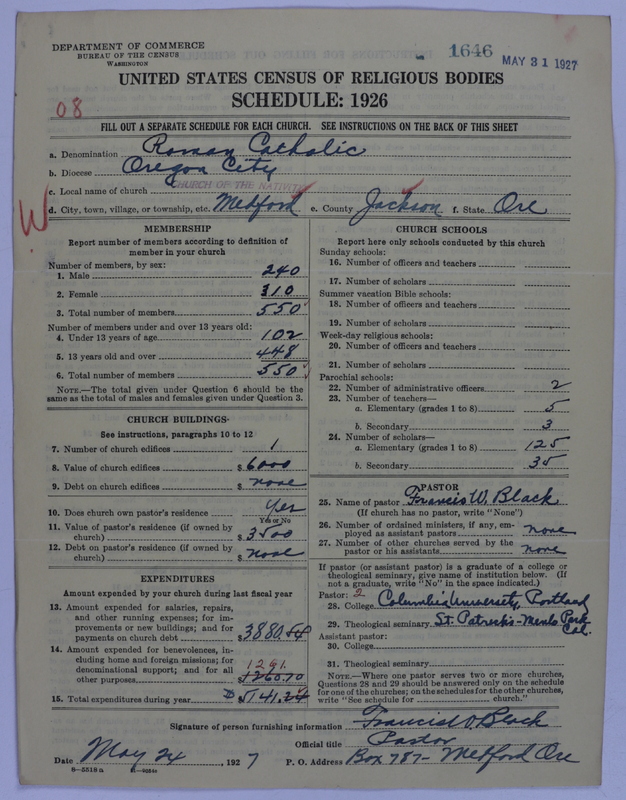 DEPARTMENT OF COMMERCE
BUREAU OF THE CENSUS
WASHINGTON
1646
MAY 31 1927
UNITED STATES CENSUS OF RELIGIOUS BODIES
SCHEDULE: 1926
08
FILL OUT A SEPARATE SCHEDULE FOR EACH CHURCH. SEE INSTRUCTIONS ON THE BACK OF THIS SHEET
a. Denomination Roman Catholic
b. Diocese Oregon City
c. Local name of church CHURCH OF THE NATIVITY
d. City, town, village, or township, etc. Medford e. County Jackson f. State Ore
W
MEMBERSHIP
Report number of members according to definition of
member in your church
Number of members, by sex:
1. Male 240
2. Female 310
3. Total number of members 550
Number of members under and over 13 years old:
4. Under 13 years of age 102
5. 13 years old and over 448
6. Total number of members 550
NOTE.—The total given under Question 6 should be the
same as the total of males and females given under Question 3.
CHURCH BUILDINGS
See instructions, paragraphs 10 to 12
7. Number of church edifices 1
8. Value of church edifices $ 6000
9. Debt on church edifices $ none
10. Does church own pastor's residence yes
Yes or No
11. Value of pastor's residence (if owned by
church) $ 3500
12. Debt on pastor's residence (if owned by
church) $ none
EXPENDITURES
Amount expended by your church during last fiscal year
13. Amount expended for salaries, repairs,
and other running expenses; for im-
provements or new buildings; and for
payments on church debt $ 3880.54
14. Amount expended for benevolences, in-
cluding home and foreign missions; for
denominational support; and for all
other purposes 1291.
$ 1260.70
15. Total expenditures during year $ 5141.24
CHURCH SCHOOLS
Report here only schools conducted by this church
Sunday schools:
16. Number of officers and teachers
17. Number of scholars
Summer vacation Bible schools:
18. Number of officers and teachers
19. Number of scholars
Week-day religious schools:
20. Number of officers and teachers
21. Number of scholars
Parochial schools:
22. Number of administrative officers 2
23. Number of teachers—
a. Elementary (grades 1 to 8) 5
b. Secondary 3
24. Number of scholars—
a. Elementary (grades 1 to 8) 125
b. Secondary 35
PASTOR
25. Name of pastor Francis W. Black
(If church has no pastor, write "None")
26. Number of ordained ministers, if any, em-
ployed as assistant pastors none
27. Number of other churches served by the
pastor or his assistants none
If pastor (or assistant pastor) is a graduate of a college or
theological seminary, give name of institution below. (If
not a graduate, write "No" in the space indicated.)
Pastor: 2
28. College Columbia University, Portland
29. Theological seminary St. Patrick's-Menlo Park
Cal.
Assistant pastor:
30. College
31. Theological seminary
NOTE.—Where one pastor serves two or more churches,
Questions 28 and 29 should be answered only on the schedule
for one of the churches; on the schedules for the other churches,
write "See schedule for church."
Signature of person furnishing information Francis W. Black
Official title Pastor
Date May 24, 1927 P. O. Address Box 787- Medford Ore